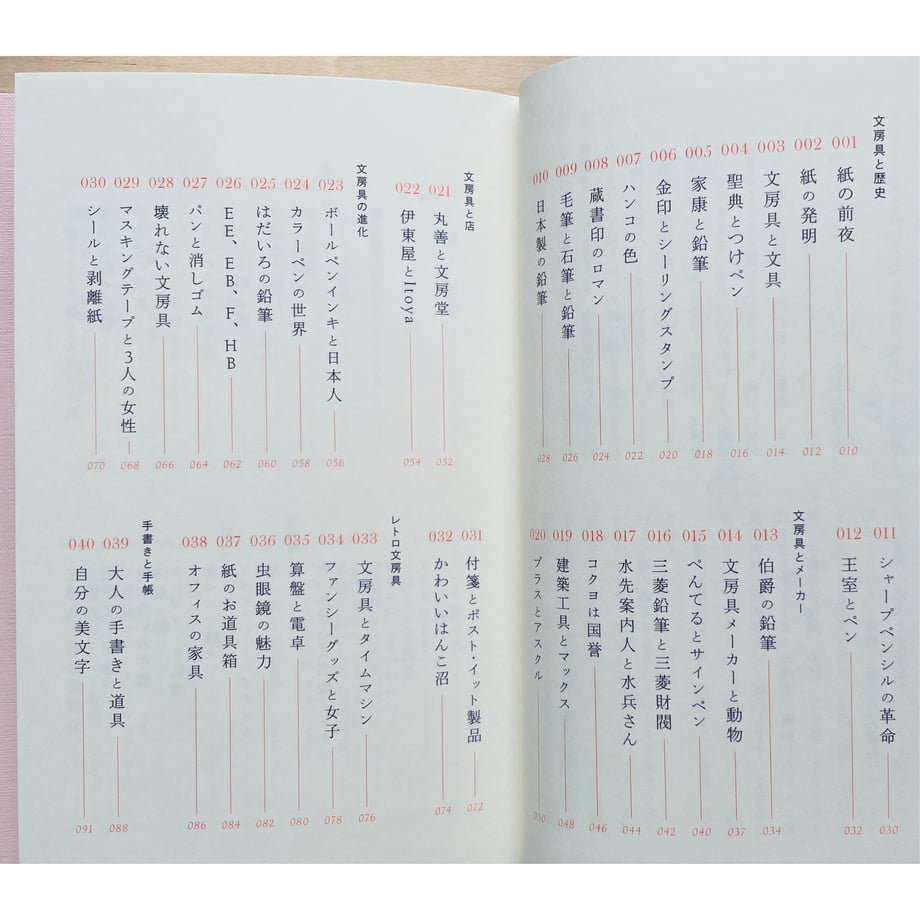 文房具と歴史
001 紙の前夜 010
002 紙の発明 012
003 文房具と文具 014
004 聖典とつけペン 016
005 家康と鉛筆 018
006 金印とシーリングスタンプ 020
007 ハンコの色 022
008 蔵書印のロマン 024
009 毛筆と石筆と鉛筆 026
010 日本製の鉛筆 028
011 シャープペンシルの革命 030
012 王室とペン 032
文房具とメーカー
013 伯爵の鉛筆 034
014 文房具メーカーと動物 037
015 ぺんてるとサインペン 040
016 三菱鉛筆と三菱財閥 042
017 水先案内人と水兵さん 044
018 コクヨは国誉 046
019 建築工具とマックス 048
020 プラスとアスクル 050
文房具と店
021 丸善と文房堂 052
022 伊東屋とItoya 054
文房具の進化
023 ボールペンインキと日本人 056
024 カラーペンの世界 058
025 はだいろの鉛筆 060
026 EE、EB、F、HB 062
027 パンと消しゴム 064
028 壊れない文房具 066
029 マスキングテープと3人の女性 068
030 シールと剥離紙 070
031 付箋とポスト・イット製品 072
032 かわいいはんこ沼 074
レトロ文房具
033 文房具とタイムマシン 076
034 ファンシーグッズと女子 078
035 算盤と電卓 080
036 虫眼鏡の魅力 082
037 紙のお道具箱 084
038 オフィスの家具 086
手書きと手帳
039 大人の手書きと道具 088
040 自分の美文字 091